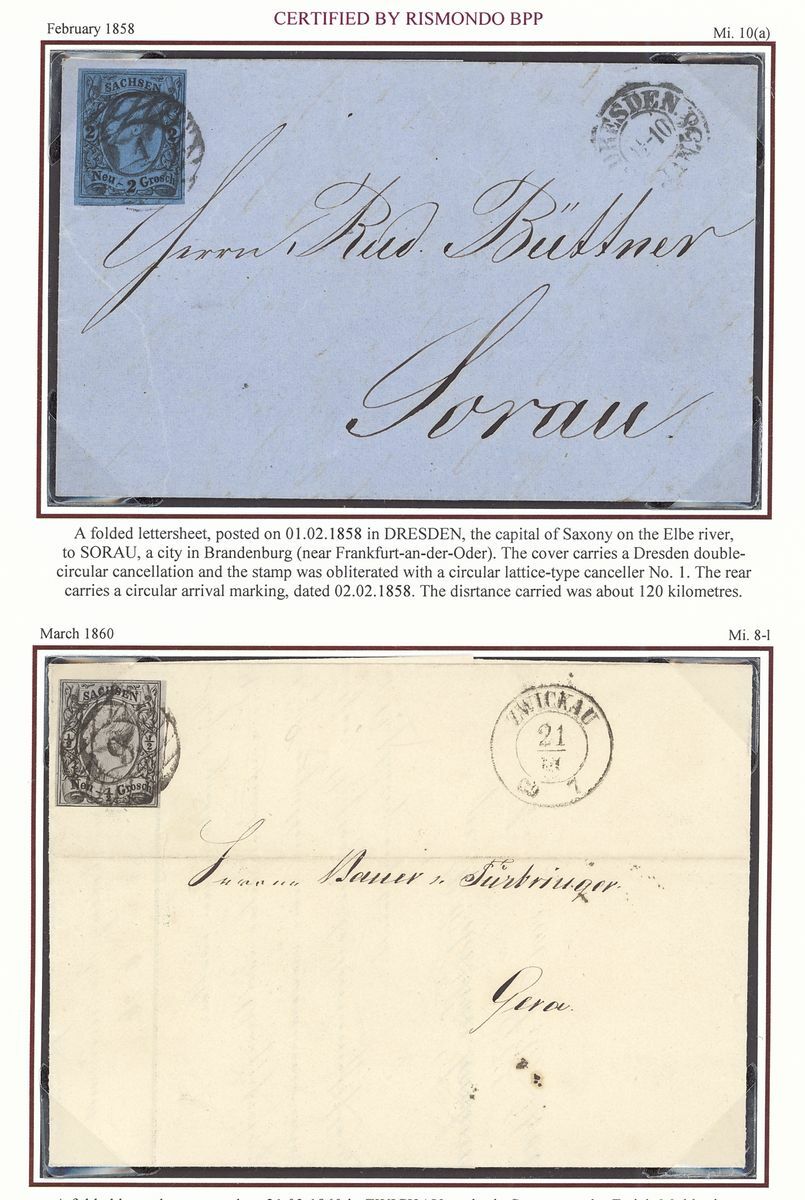 CERTIFIED BY RISMONDO BPP
February 1858
Mi. 10(a)
SACHSEN
2 2
Neu - 2 Grosch
DRESDEN
10
Herrn Rud. Büttner
Sorau.
A folded lettersheet, posted on 01.02.1858 in DRESDEN, the capital of Saxony on the Elbe river,
to SORAU, a city in Brandenburg (near Frankfurt-an-der-Oder). The cover carries a Dresden double-
circular cancellation and the stamp was obliterated with a circular lattice-type canceller No. 1. The rear
carries a circular arrival marking, dated 02.02.1858. The disrtance carried was about 120 kilometres.
March 1860
Mi. 8-l
SACHSEN
½ ½
Neu Grosch
ZWICKAU
21
III
60 7
Herren Bauer u. Fürbringer.
Gera.